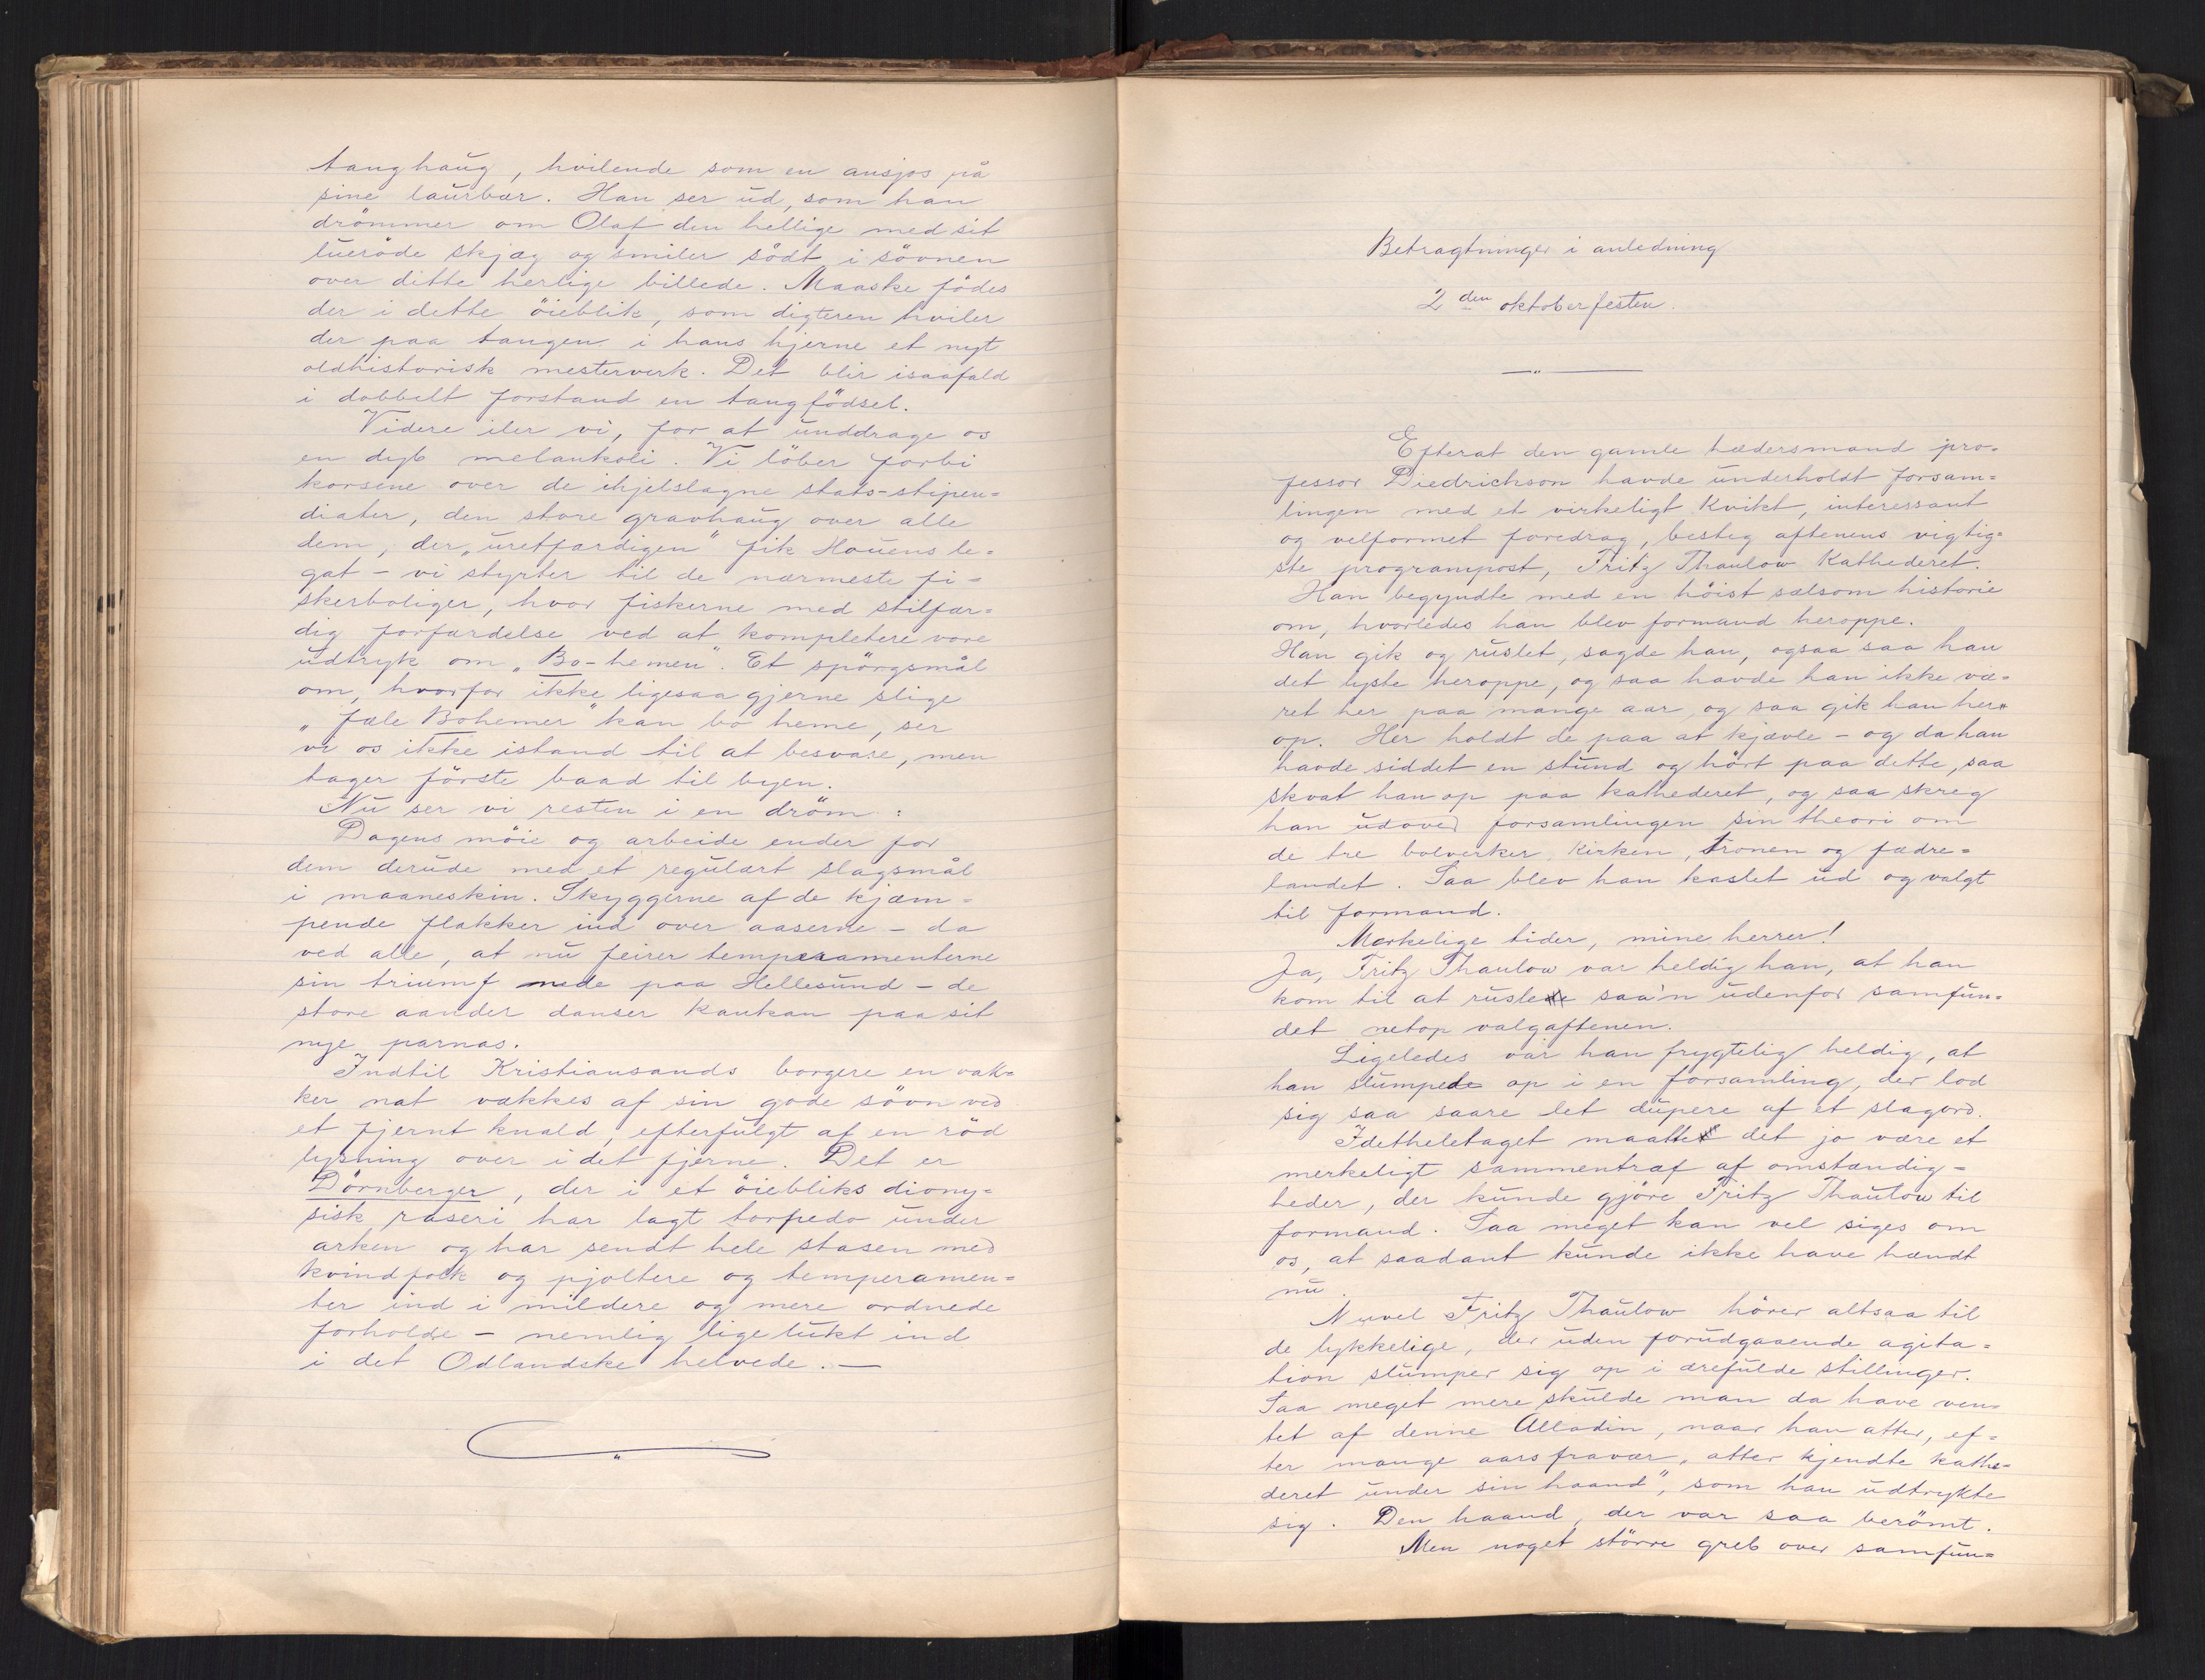 tanghaug, hvilende som en ansjos på
sine laurbær. Han ser ud, som han
drömmer om Olaf den hellige med sit
lueröde skjæg og smiler södt i sövnen
over dette herlige billede. Maaske födes
der i dette öieblik, som digteren hviler
der paa tangen i hans hjerne et nyt
oldhistorisk mesterverk. Det blir isaafald
i dobbelt forstand en tangfödsel.
Videre iler vi, for at unddrage os
en dyb melankoli. Vi löber forbi
korsene over de ihjelslagne stats-stipen=
diater, den store gravhaug over alle
dem, der „uretfærdigen" fik Houens le=
gat - vi styrter til de nærmeste fi=
skerboliger, hvor fiskerne med stilfær=
dig forfærdelse ved at kompletere vore
udtryk om „Bo-hemen". Et spörgsmål
om, hvorfor ikke ligesaa gjerne slige
„fæle Bohemer" kan bo heme, ser
vi os ikke istand til at besvare, men
tager förste baad til byen.
Nu ser vi resten i en dröm:
Dagens möie og arbeide ender for
dem derude med et regulært slagsmål
i maaneskin. Skyggerne af de kjæm=
pende flakker ind over aaserne - da
ved alle, at nu feirer temperamenterne
sin triumf nede paa Hellesund - de
store aander danser kankan paa sit
nye parnas.
Indtil Kristiansands borgere en vak=
ker nat vækkes af sin gode sövn ved
et fjernt knald, efterfulgt af en röd
lysning over i det fjerne. Det er
Dörnberger, der i et öiebliks diony=
sisk raseri har lagt torpedo under
arken og har sendt hele stasen med
kvindfolk og pjoltere og temperamen=
ter ind i mildere og mere ordnede
forholde - nemlig lige lukt ind
i det Odlandske helvede. —
Betragtninger i anledning
2den oktoberfesten.
Efterat den gamle hædersmand pro=
fessor Diedrichson havde underholdt forsam=
lingen med et virkeligt kvikt, interessant
og velformet foredrag, besteg aftenens vigtig=
ste programpost, Fritz Thaulow Kathederet.
Han begyndte med en höist sælsom historie
om, hvorledes han blev formand heroppe.
Han gik og ruslet, sagde han, ogsaa saa han
det lyste heroppe, og saa havde han ikke væ=
ret her paa mange aar, og saa gik han her=
op. Her holdt de paa at kjævle - og da han
havde siddet en stund og hört paa dette, saa
skvat han op paa kathederet, og saa skreg
han udover forsamlingen sin theori om
de tre bolverker, kirken, tronen og fædre=
landet. Saa blev han kastet ud og valgt
til formand.
Mærkelige tider, mine herrer!
Ja, Fritz Thaulow var heldig han, at han
kom til at rusle saa'n udenfor samfun=
det netop valgaftenen.
Ligeledes var han frygtelig heldig, at
han slumpede op i en forsamling, der lod
sig saa saare let dupere af et slagord.
Idetheletaget maatte det jo være et
merkeligt sammentræf af omstændig=
heder, der kunde gjöre Fritz Thaulow til
formand. Saa meget kan vel siges om
os, at saadant kunde ikke have hændt
nu.
Nuvel Fritz Thaulow hörer altsaa til
de lykkelige, der uden forudgaaende agita=
tion slumper sig op i ærefulde stillinger.
Saa meget mere skulde man da have ven=
tet af denne Alladin, naar han atter, ef=
ter mange aars fravær, „atter kjendte kathe=
deret under sin haand", som han udtrykte
sig. Den haand, der var saa berömt.
Men noget större greb over samfun=